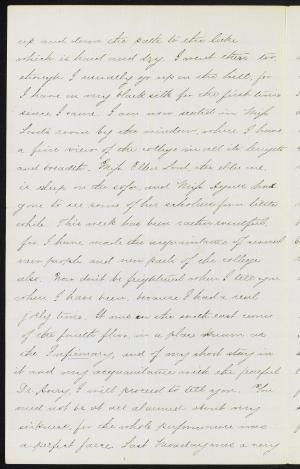 up and down the path to the lake
which is hard and dry. I went there too
though I usually go up on the hill, for
I have on my black silk for the first time
since I came. I am now seated in Miss
Lord's room by the window, where I have
a fine view of the college in all its length
and breadth. Miss Ellen Lord, the elder one
is sleep on the sofa, and Miss Agnes has
gone to see some of her scholars for a little
while. This week has been rather eventful,
for I have made the acquaintance of several
new people and new parts of the college
also. Now don't be frightened when I tell you
where I have been, because I had a real
jolly time. It was on the south east corner
of the fourth floor, in a place known as
the Infirmary, and of my short stay in
it and my acquaintance with the fearful
Dr. Avery, I will proceed to tell you. You
need not be at all alarmed about my
sickness, for the whole performance was
a perfect farce. Last Tuesday was a very